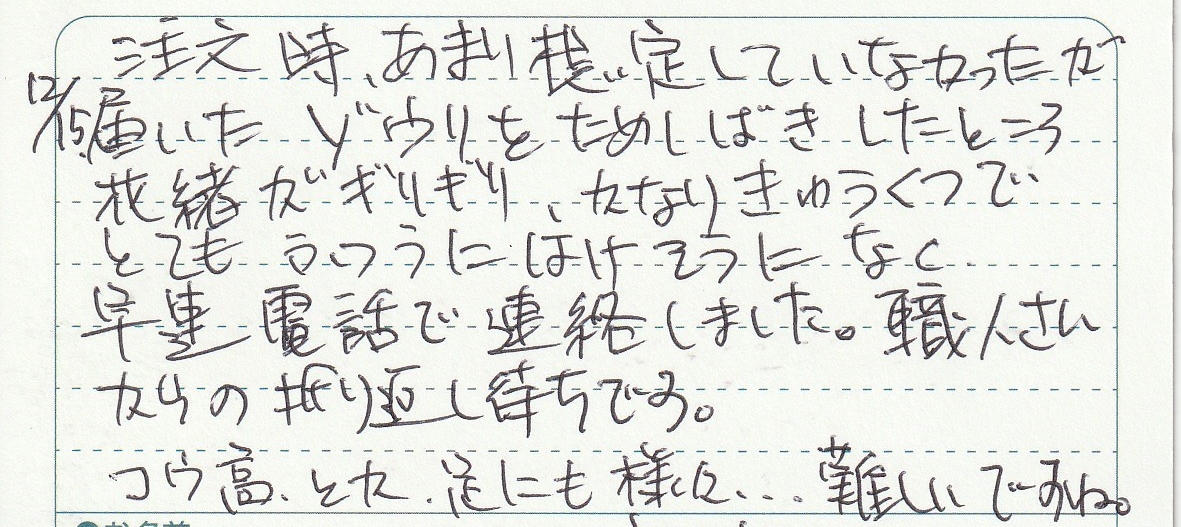 注文時、あまり想定していなかったが
12/15届いた ゾウリを ためしばき したところ
花緒が ぎりぎり、かなり きゅうくつで
とても ふつうに はけ そうに なく
早速 電話で 連絡しました。職人さん
からの 折り返し待ちです。
コウ高、とか、足にも 様々... 難しいですね。